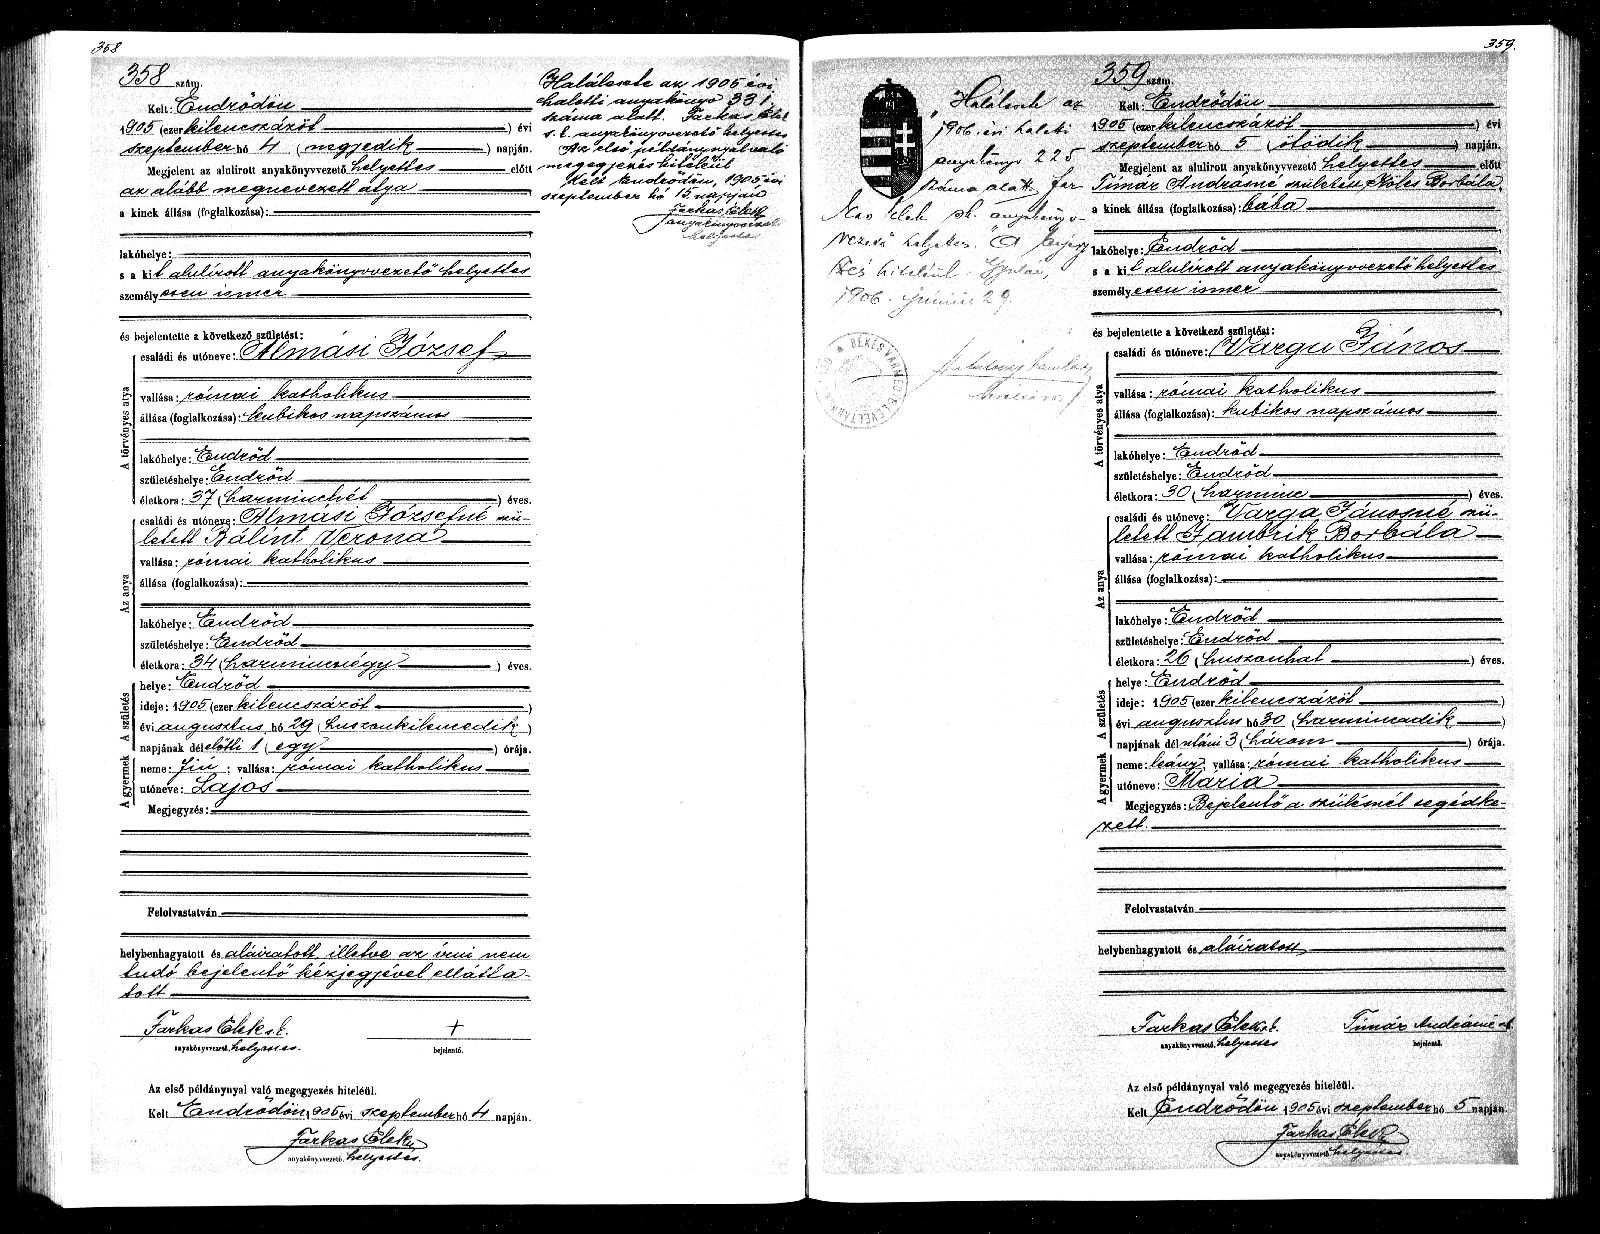 358
358 szám.
Kelt: Endrődön
1905 (ezer kilencszázöt ) évi
szeptember hó 4 ( negyedik ) napján.
Megjelent az alulirott anyakönyvvezető helyettes előtt
az alább megnevezett atya
a kinek állása (foglalkozása):
lakóhelye:
s a kit alulírott anyakönyvvezető helyettes
személyesen ismer
és bejelentette a következő születést:
A törvényes atya
családi és utóneve: Almási József
vallása: római katholikus
állása (foglalkozása): kubikos napszámos
lakóhelye: Endrőd
születéshelye: Endrőd
életkora: 37 ( harminchét ) éves.
Az anya
családi és utóneve: Almási Józsefné szü-
letett Bálint Verona
vallása: római katholikus
állása (foglalkozása):
lakóhelye: Endrőd
születéshelye: Endrőd
életkora: 34 ( harmincnégy ) éves.
A születés
helye: Endrőd
ideje: 1905 (ezer kilencszázöt )
évi augusztus hó 29 ( huszonkilencedik )
napjának délelőtti 1 ( egy ) órája.
A gyermek
neme: fiú ; vallása: római katholikus
utóneve: Lajos
Megjegyzés:
Felolvastatván
helybenhagyatott és aláiratott, illetve az írni nem
tudó bejelentő kézjegyével ellátta-
tott
Farkas Elek s.k. +
anyakönyvvezető. helyettes. bejelentő.
Az első példánynyal való megegyezés hiteléül.
Kelt Endrődön 1905 évi szeptember hó 4 napján.
Farkas Elek
anyakönyvvezető. helyettes.
Halálesete az 1905 évi
halotti anyakönyv 331
száma alatt. Farkas Elek
s. k. anyakönyvvezető helyettes
Az első példánynyal való
megegyezés hiteléül
Kelt Endrődön, 1905 évi
szeptember hó 15 napján
Farkas Elek
anyakönyvvezető
helyettes
359.
"Halálesete az
1906. évi haloti
anyakönyv 225
száma alatt far
kas Elek sk. anyakönyv-
vezető helyettes." A bejegy
zés hiteléül. Gyula,
1906. június 29.
BÉKÉS VÁRMEGYE LEVÉLTÁRA
359 szám.
Kelt: Endrődön
1905 (ezer kilencszázöt ) évi
szeptember hó 5 ( ötödik ) napján.
Megjelent az alulirott anyakönyvvezető helyettes előtt
Tímár Andrásné született Köles Borbála,
a kinek állása (foglalkozása): bába
lakóhelye: Endrőd
s a kit alulírott anyakönyvvezető helyettes
személyesen ismer
és bejelentette a következő születést:
A törvényes atya
családi és utóneve: Varga János
vallása: római katholikus
állása (foglalkozása): kubikos napszámos
lakóhelye: Endrőd
születéshelye: Endrőd
életkora: 30 ( harminc ) éves.
Az anya
családi és utóneve: Varga Jánosné szü-
letett Jambrik Borbála
vallása: római katholikus
állása (foglalkozása):
lakóhelye: Endrőd
születéshelye: Endrőd
életkora: 26 ( huszonhat ) éves.
A születés
helye: Endrőd
ideje: 1905 (ezer kilencszázöt )
évi augusztus hó 30 ( harmincadik )
napjának délutáni 3 ( három ) órája.
A gyermek
neme: leány; vallása: római katholikus
utóneve: Mária
Megjegyzés: Bejelentő a szülésnél segédke-
zett.
Felolvastatván
helybenhagyatott és aláiratott
Farkas Elek s.k. Tímár Andrásné s.k.
anyakönyvvezető. helyettes bejelentő.
Az első példánynyal való megegyezés hiteléül.
Kelt Endrődön 1905 évi szeptember hó 5 napján
Farkas Elek
anyakönyvvezető. helyettes.